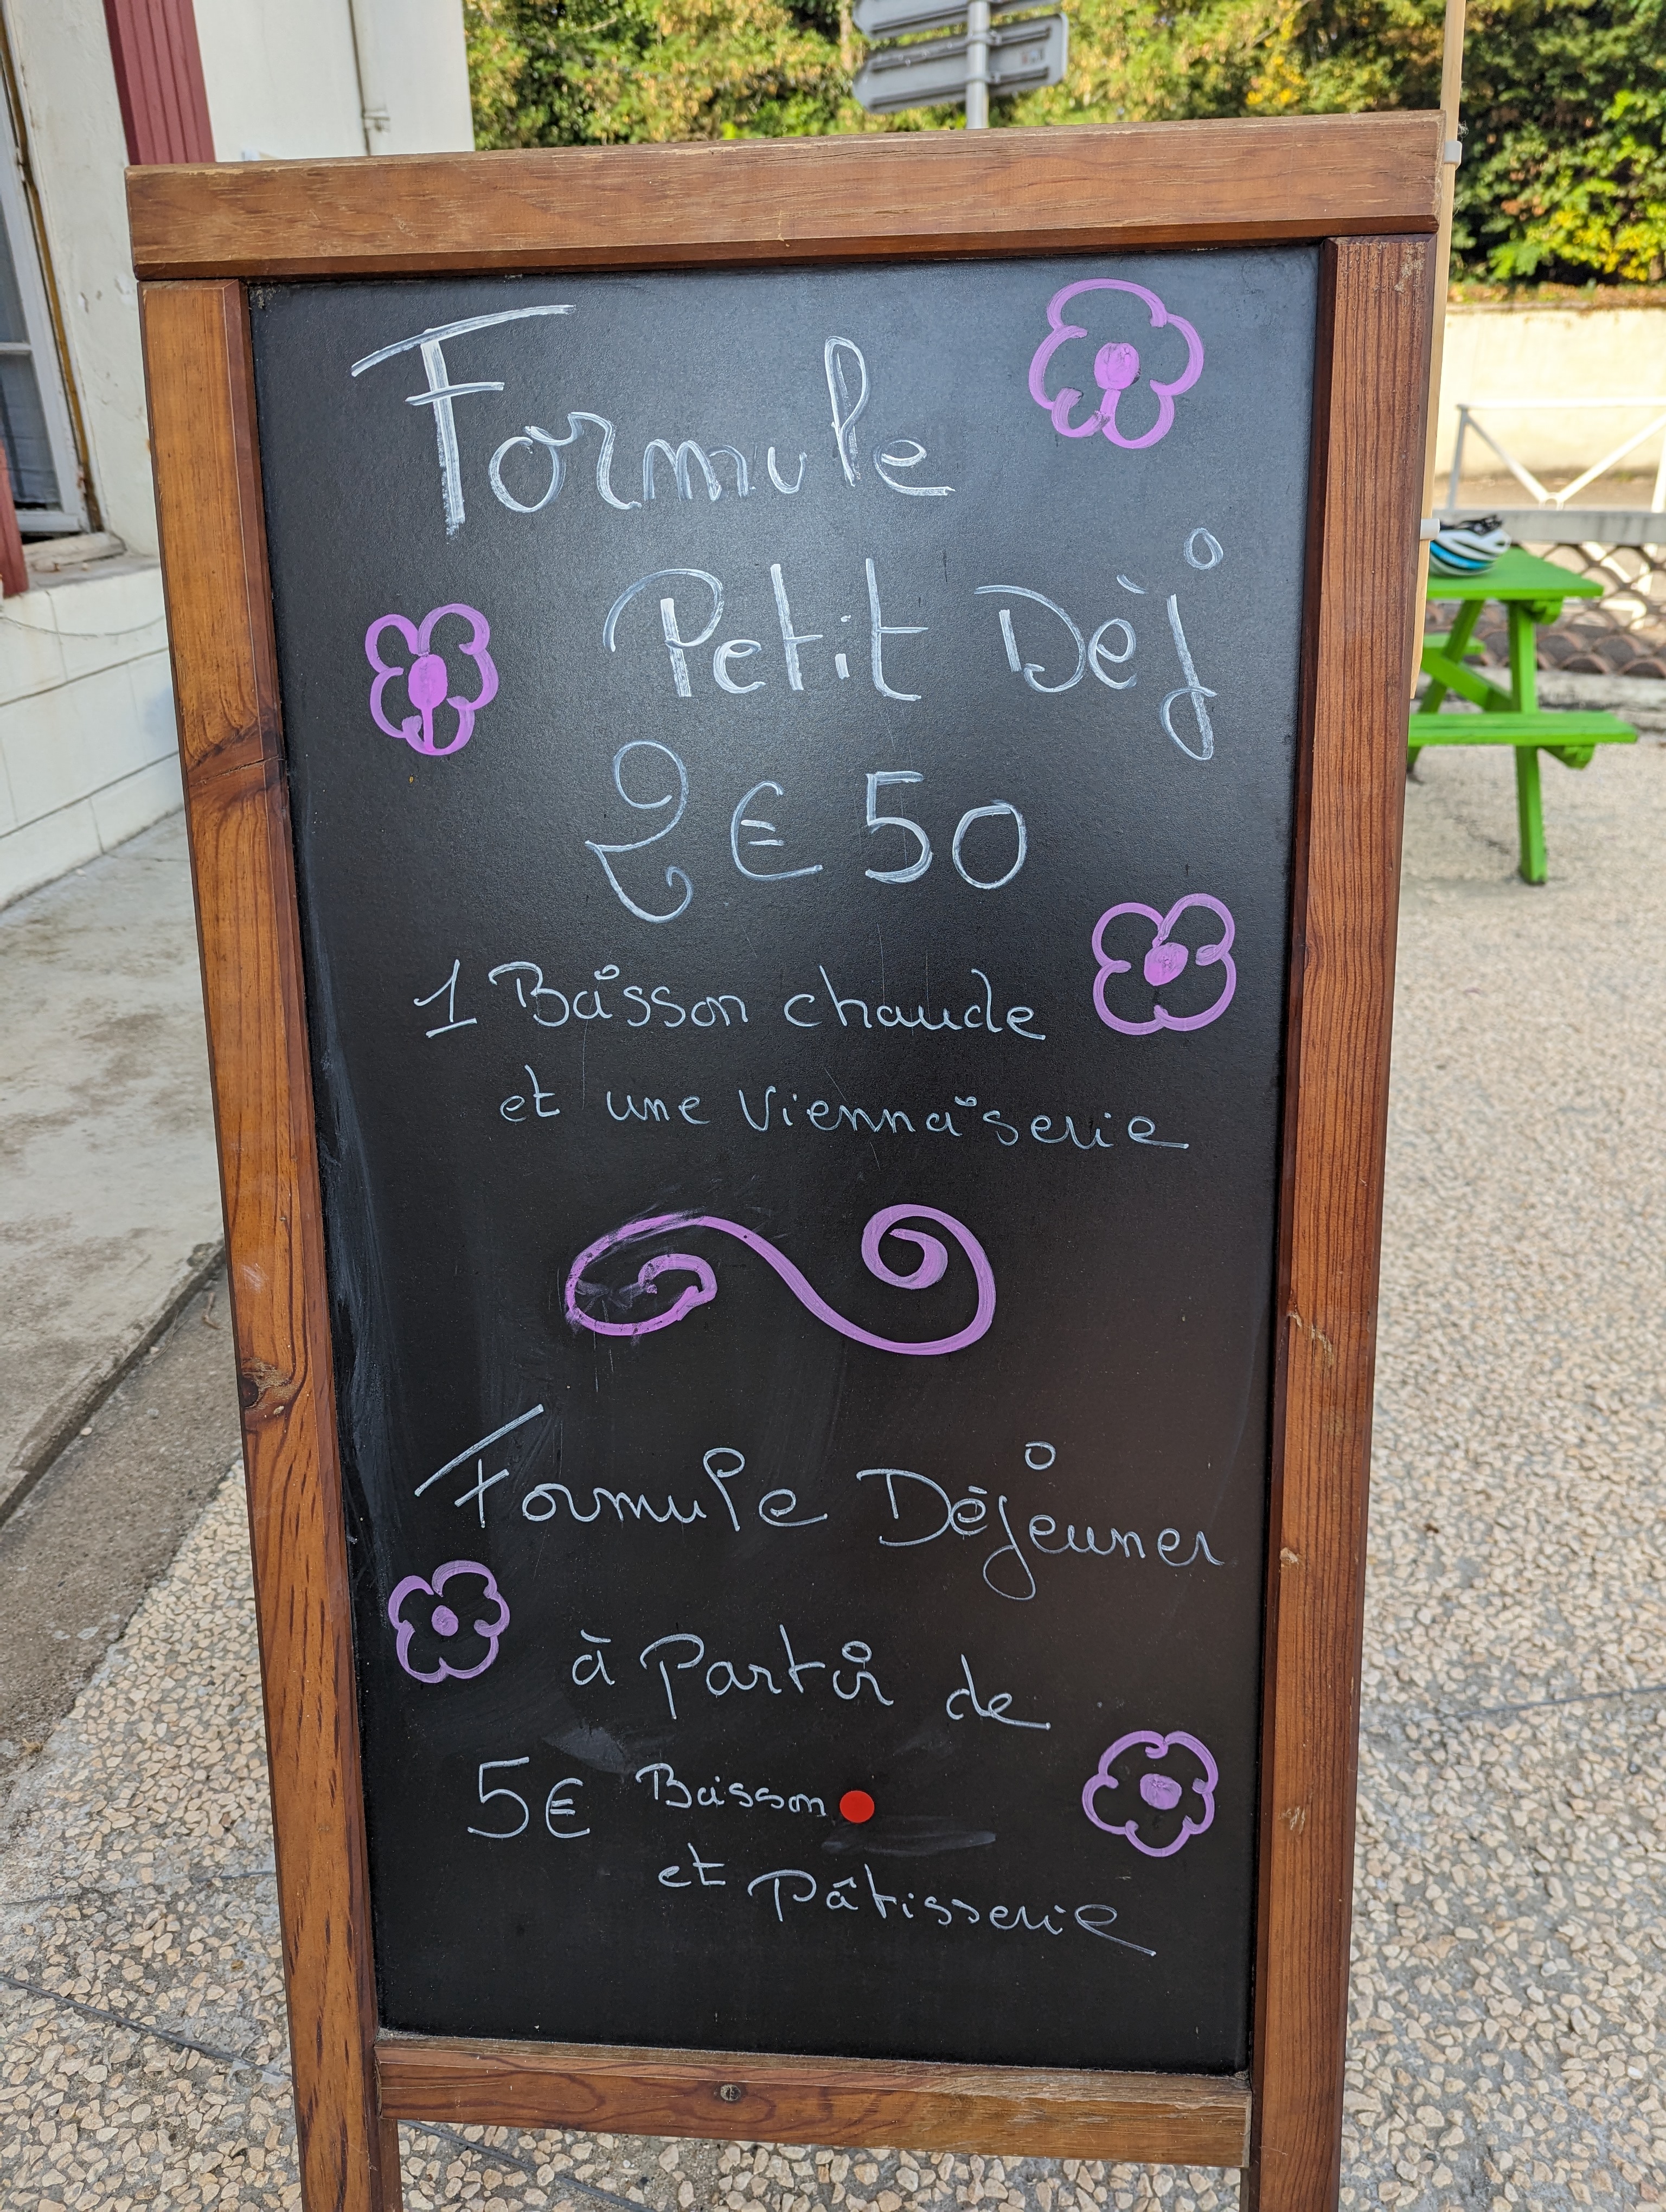 Formule
Petit Dèj
2€50
1 Boisson chaude
et une Viennoiserie
Formule Déjeuner
à Partir de
5€ Boisson
et Pâtisserie